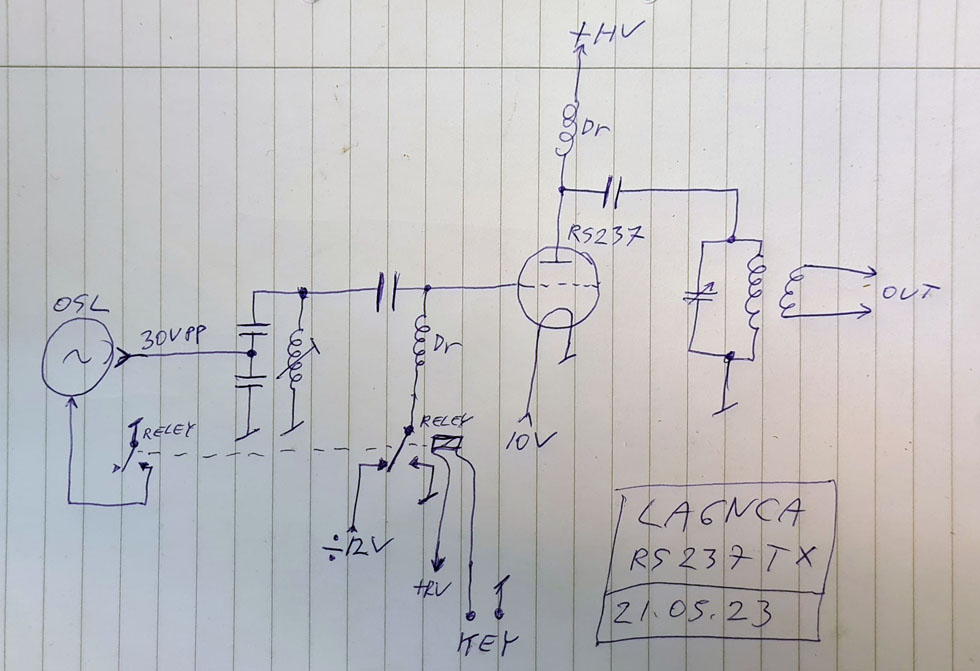 +HV
Dr
RS237
OSL
30VPP
OUT
Dr
RELEY
RELEY
10V
÷12V
+RV
KEY
LA6NCA
RS237 TX
21.05.23